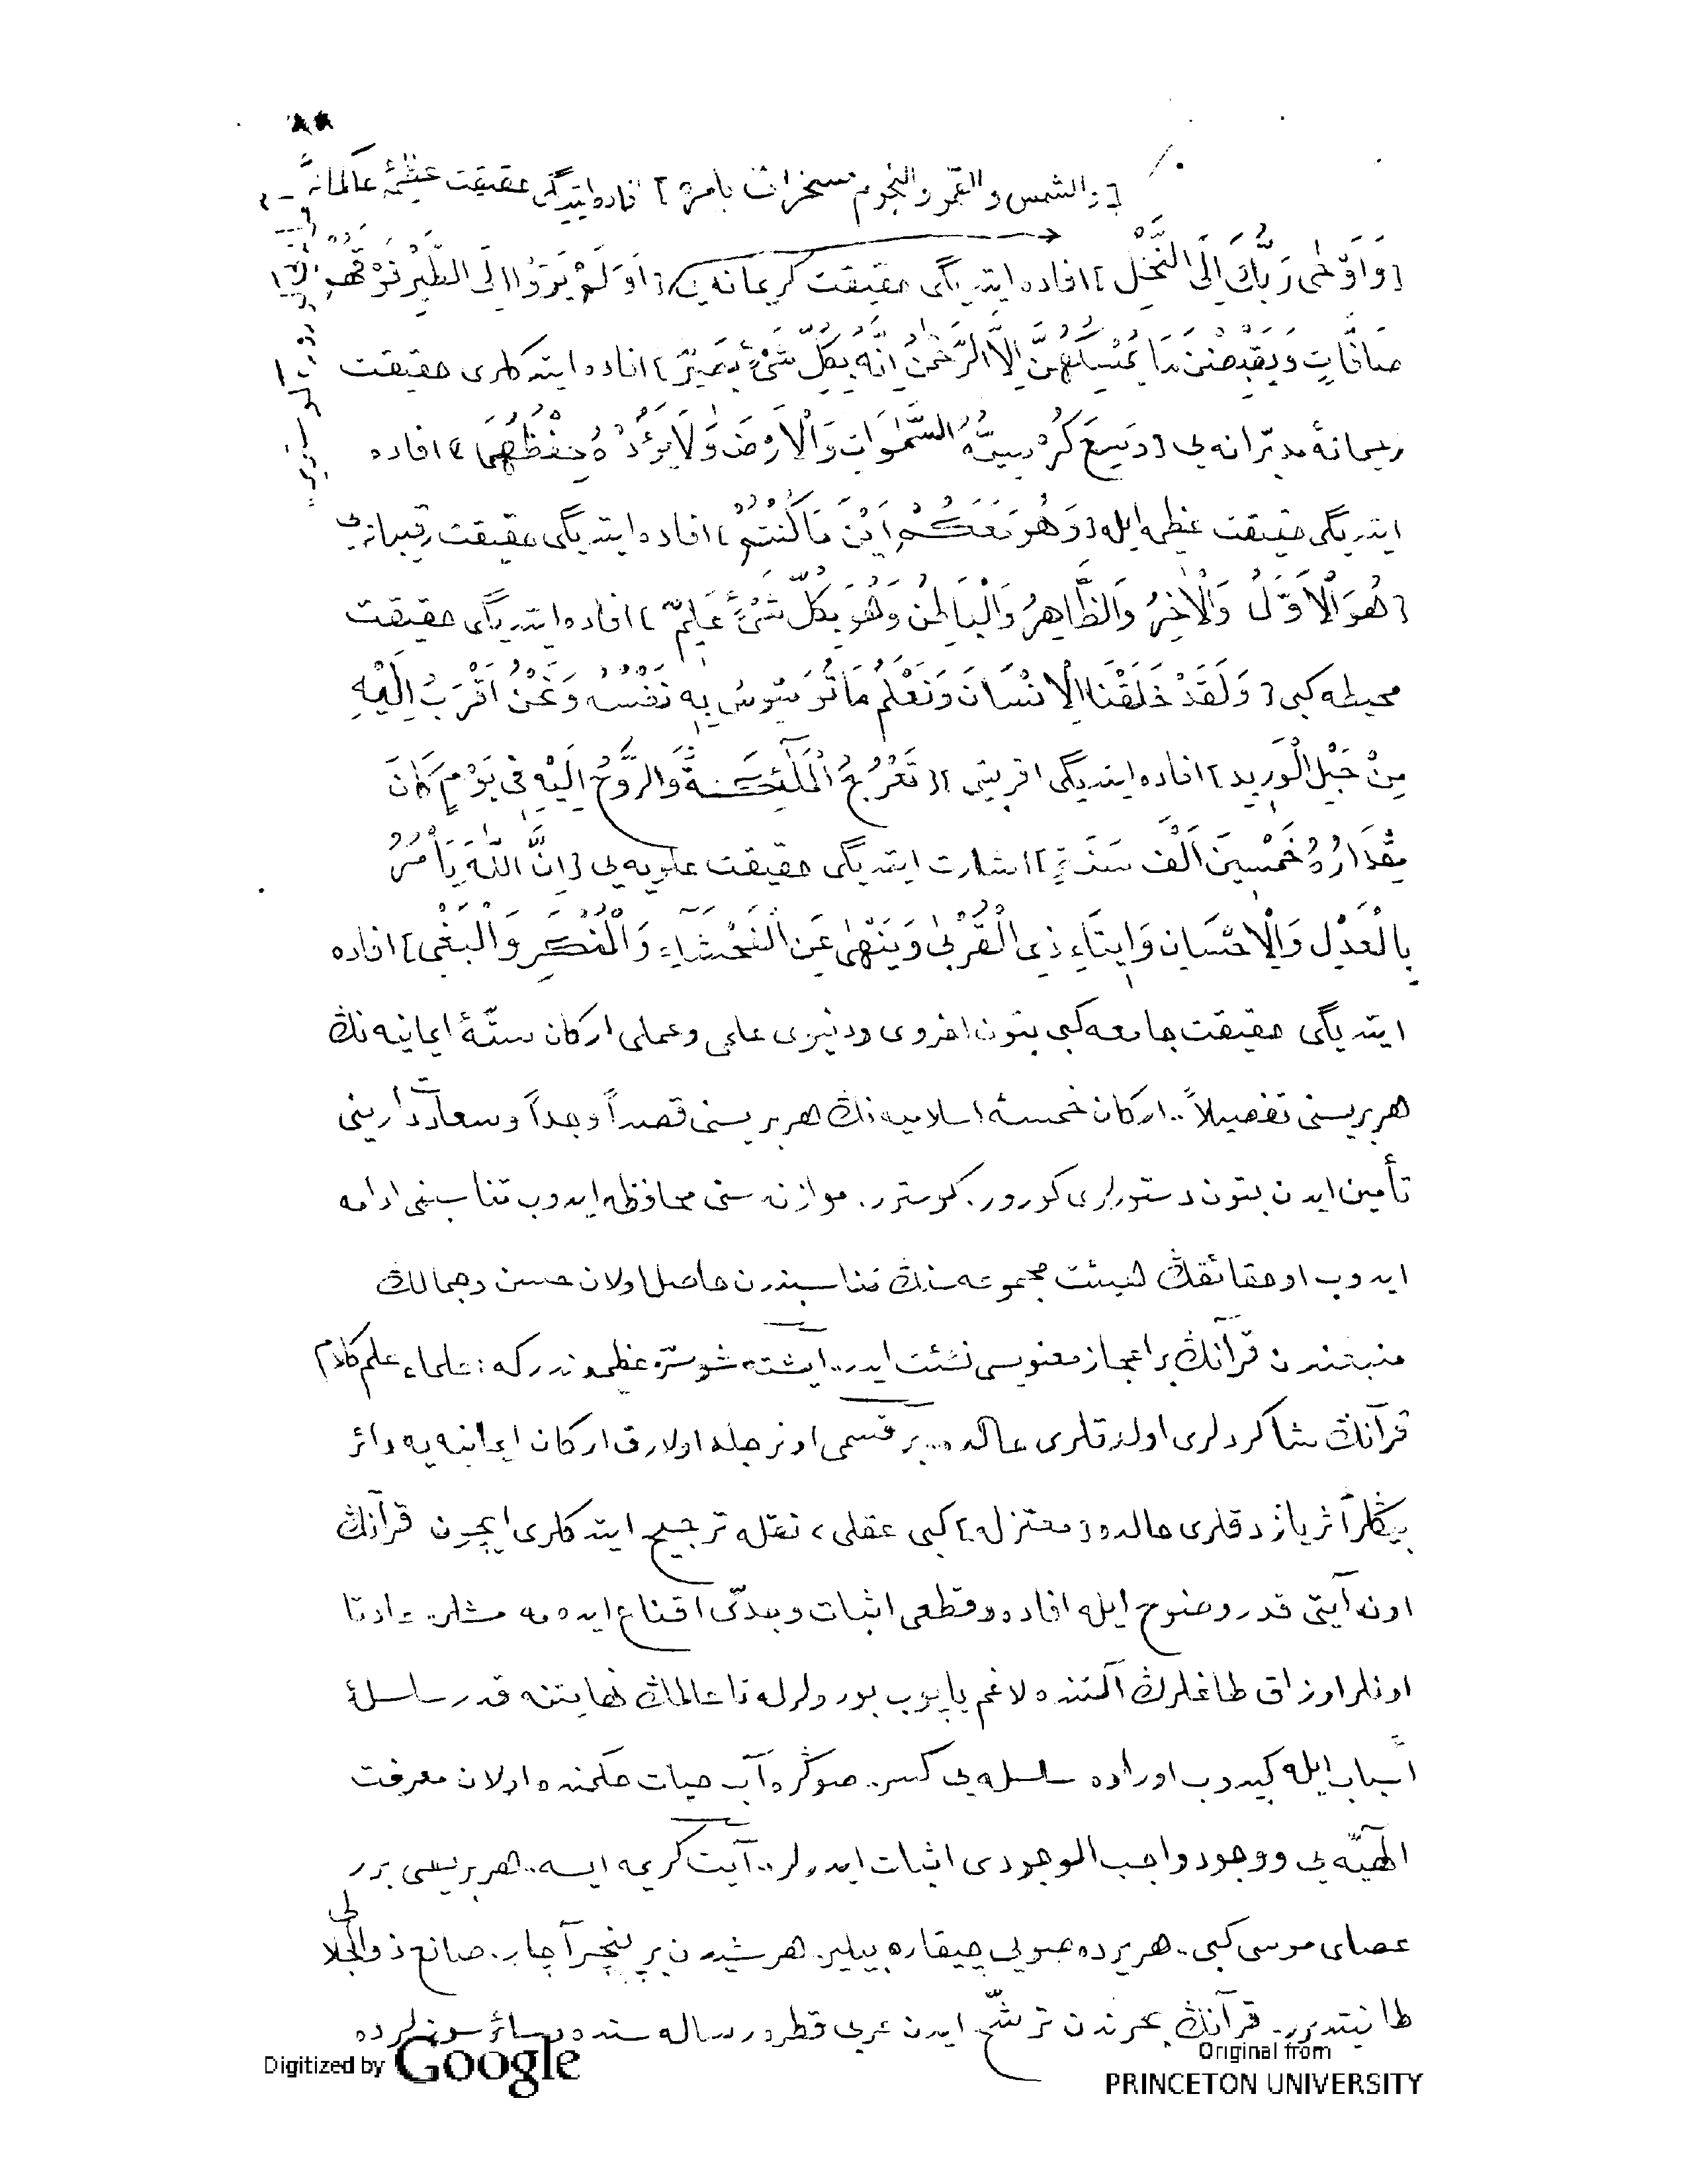 [والشمس والقمر والنجوم مسخرات بامره] افاده ایتدیگی حقیقت عظیمهٔ عالمانه
[وَاَوْحٰى رَبُّكَ اِلَى النَّحْلِ] افاده ایتدیگی حقیقت كریمانه یی [اَوَلَمْ يَرَوْا اِلَى الطَّيْرِ فَوْقَهُمْ
صَافَّاتٍ وَيَقْبِضْنَ مَا يُمْسِكُهُنَّ اِلَّا الرَّحْمٰنُ اِنَّهُ بِكُلِّ شَىْءٍ بَصِيرٌ] افاده ایتدكلری حقیقت
رحیمانهٔ مدبّرانه یی [وَسِعَ كُرْسِيُّهُ السَّمٰوَاتِ وَالْاَرْضَ وَلَا يَؤُدُهُ حِفْظُهُمَا] افاده
ایتدیگی حقیقت عظیمه ایله [وَهُوَ مَعَكُمْ اَيْنَ مَا كُنْتُمْ] افاده ایتدیگی حقیقت رقیبانه یی
[هُوَ الْاَوَّلُ وَالْاٰخِرُ وَالظَّاهِرُ وَالْبَاطِنُ وَهُوَ بِكُلِّ شَىْءٍ عَلِيمٌ] افاده ایتدیگی حقیقت
محیطه كبی [وَلَقَدْ خَلَقْنَا الْاِنْسَانَ وَنَعْلَمُ مَا تُوَسْوِسُ بِهِ نَفْسُهُ وَنَحْنُ اَقْرَبُ اِلَيْهِ
مِنْ حَبْلِ الْوَرِيدِ] افاده ایتدیگی اقربیتی [تَعْرُجُ الْمَلٰٓئِكَةُ وَالرُّوحُ اِلَيْهِ فِى يَوْمٍ كَانَ
مِقْدَارُهُ خَمْسِينَ اَلْفَ سَنَةٍ] اشارت ایتدیگی حقیقت علویه یی [اِنَّ اللّٰهَ يَاْمُرُ
بِالْعَدْلِ وَالْاِحْسَانِ وَاِيتَاءِ ذِى الْقُرْبٰى وَيَنْهٰى عَنِ الْفَحْشَاءِ وَالْمُنْكَرِ وَالْبَغْىِ] افاده
ایتدیگی حقیقت جامعه كبی بتون اخروی ودنیوی علمی وعملی اركان ستّهٔ ایمانیه نڭ
هر بریسنی تفصیلاً.. اركان خمسهٔ اسلامیه نڭ هر بریسنی قصداً وجداً وسعادت دارینی
تأمین ایدن بتون دستورلری كورور. كوسترر. موازنه سنی محافظه ایدوب تناسبنی ادامه
ایدوب او حقائقڭ هیئت مجموعه سنڭ تناسبندن حاصل اولان حسن وجمالڭ
منبعندن قرآنڭ بر اعجاز معنویسی نشئت ایدر.. ایشته شو سرّ عظیمدندر كه: علماء علم كلام
قرآنڭ شاكردلری اولدقلری حالده.. بر قسمی اونر جلد اولارق اركان ایمانیه یه دائر
بیڭلر اثر یازدقلری حالده [معتزله] كبی عقلی، نقله ترجیح ایتدكلری ایچون قرآنڭ
اون آیتی قدر وضوح ایله افاده وقطعی اثبات وجدّی اقناع ایده مه مشلر. عادتا
اونلر اوزاق طاغلرڭ آلتنده لاغم یاپوب بورولرله تا عالمڭ نهایتنه قدر سلسلهٔ
اسباب ایله كیدوب اوراده سلسله یی كسر.. صوڭره آب حیات حكمنده اولان معرفت
الٰهیّه یی ووجود واجب الوجودی اثبات ایدرلر.. آیت كریمه ایسه.. هر بریسی برر
عصای موسی كبی.. هر یرده صویی چیقاره بیلیر. هر شیدن بر پنجره آچار. صانع ذو الجلالی
طانیتدیرر. قرآنڭ بحرندن ترشّح ایدن عربی قطره رساله سنده وسائر سوزلرده